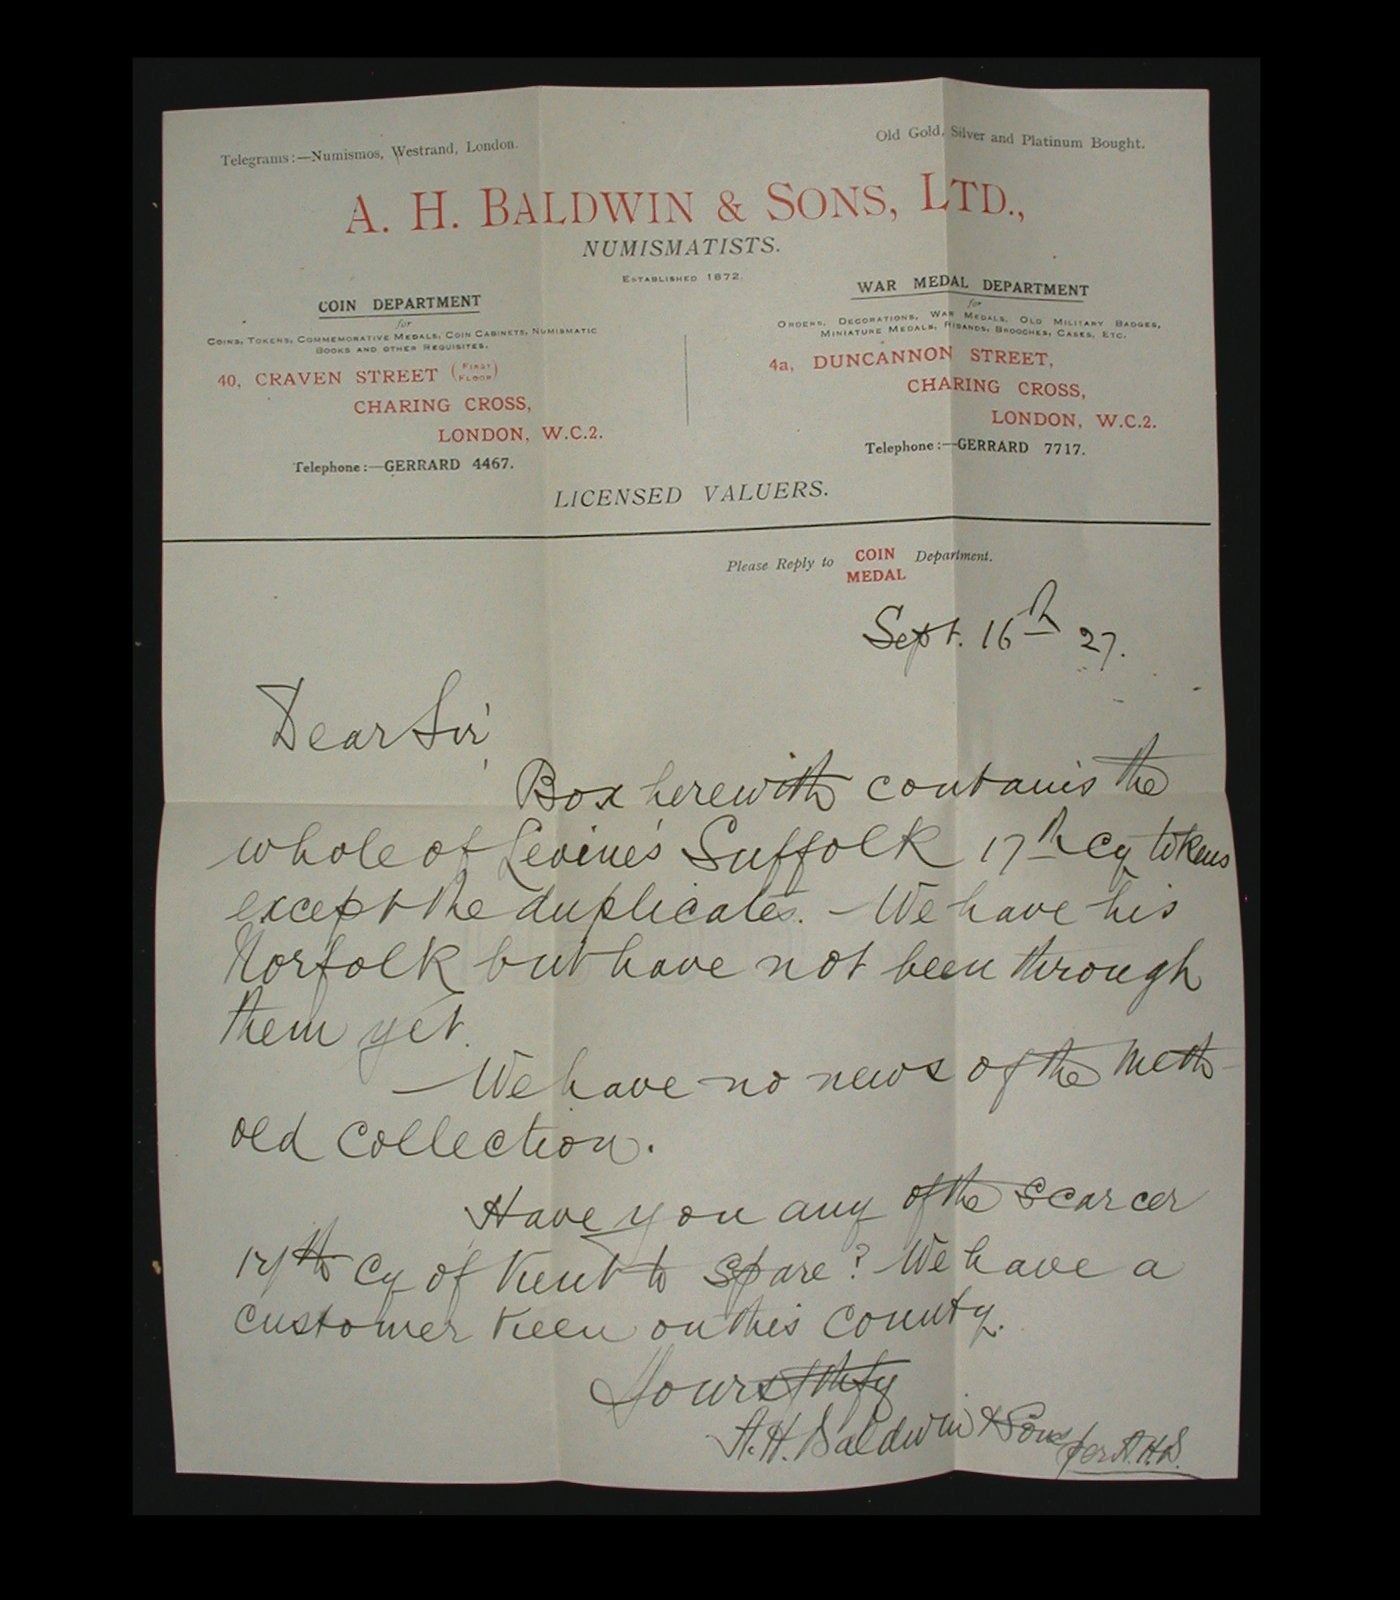 Telegrams:—Numismos, Westrand, London.
Old Gold, Silver and Platinum Bought.
A. H. BALDWIN & SONS, LTD.,
NUMISMATISTS.
ESTABLISHED 1872.
COIN DEPARTMENT
for
COINS, TOKENS, COMMEMORATIVE MEDALS, COIN CABINETS, NUMISMATIC
BOOKS AND OTHER REQUISITES.
40, CRAVEN STREET (FIRST FLOOR)
CHARING CROSS,
LONDON, W.C.2.
Telephone:—GERRARD 4467.
WAR MEDAL DEPARTMENT
for
ORDERS, DECORATIONS, WAR MEDALS, OLD MILITARY BADGES,
MINIATURE MEDALS, RIBANDS, BROOCHES, CASES, ETC.
4a, DUNCANNON STREET,
CHARING CROSS,
LONDON, W.C.2.
Telephone:—GERRARD 7717.
LICENSED VALUERS.
Please Reply to COIN MEDAL Department.
Sept. 16th 27.
Dear Sir,
Box herewith contains the
whole of Levine's Suffolk 17th Cy tokens
except the duplicates. — We have his
Norfolk but have not been through
them yet.
— We have no news of the Meth-
old collection.
Have you any of the scarcer
17th Cy of Kent to spare? We have a
customer keen on this county.
Yours ffthfy
A. H. Baldwin & Sons per A.H.B.